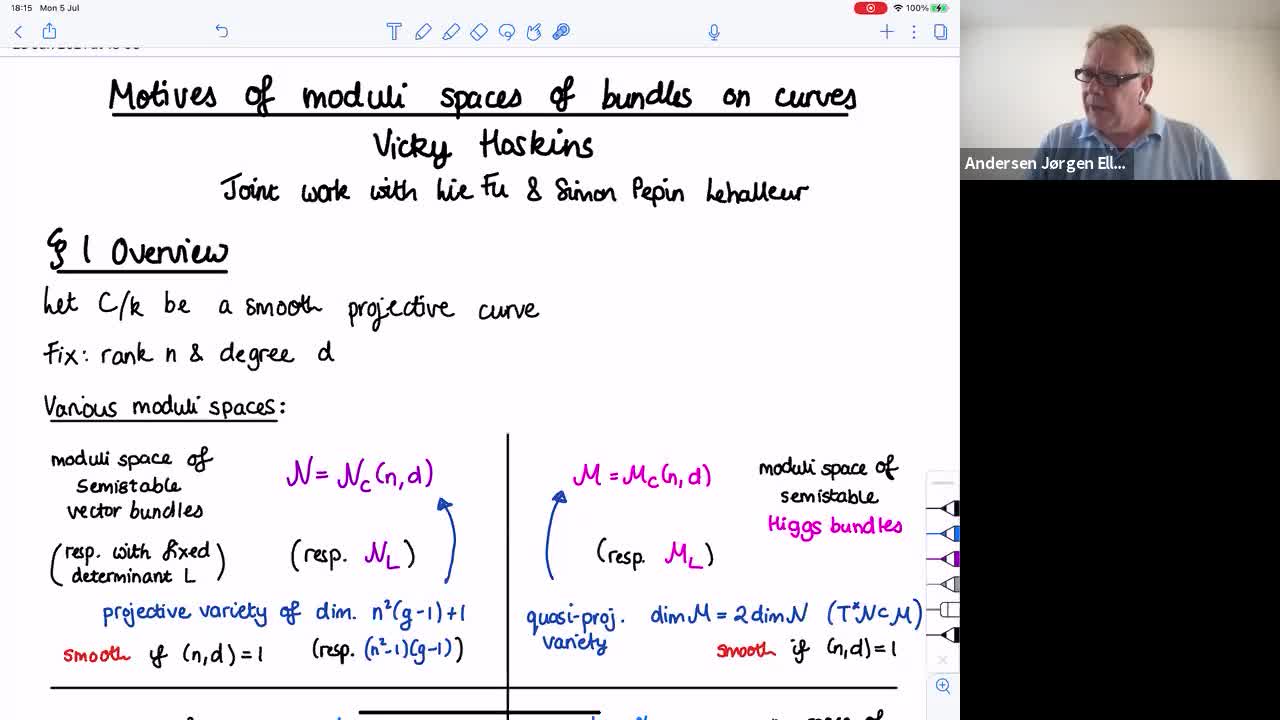 18:15 Mon 5 Jul
100%
Motives of moduli spaces of bundles on curves
Vicky Hoskins
Joint work with Lie Fu & Simon Pepin Lehalleur
§ 1 Overview
Let C/k be a smooth projective curve
Fix: rank n & degree d
Various moduli spaces:
moduli space of
semistable
vector bundles
(resp. with fixed
determinant L)
N = N_C(n,d)
(resp. N_L)
projective variety of dim. n²(g-1)+1
smooth if (n,d)=1 (resp. (n²-1)(g-1))
M = M_C(n,d)
(resp. M_L)
moduli space of
semistable
Higgs bundles
quasi-proj. variety
dim M = 2 dim N (T*N ⊂ M)
smooth if (n,d)=1
Andersen Jørgen Ell...